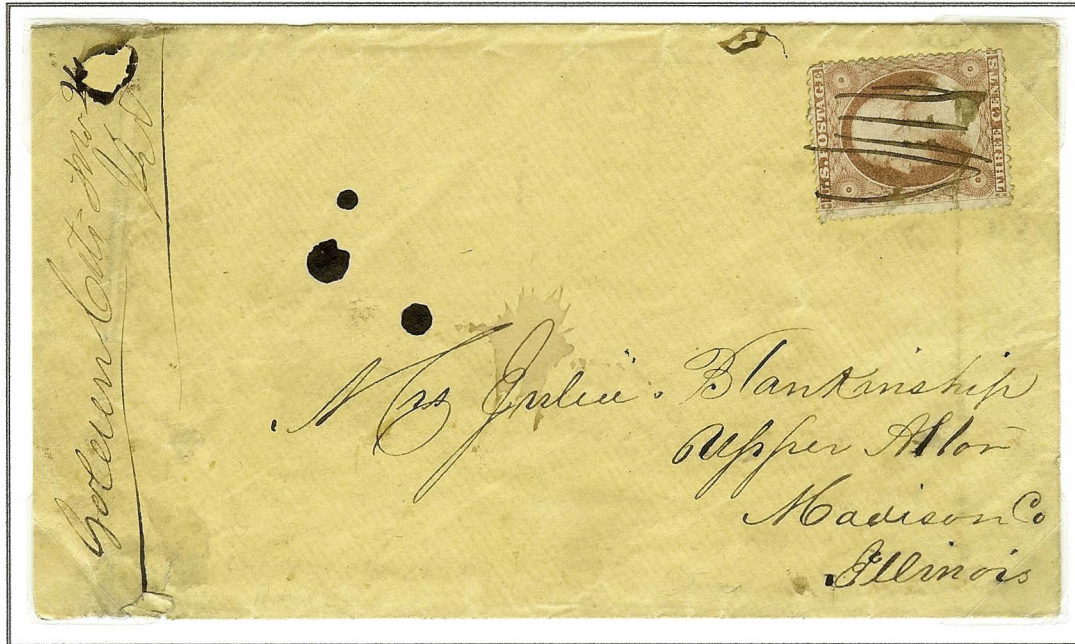 Golden City
U.S. POSTAGE
THREE CENTS
Mrs Julia Blankinship
Upper Alton
Madison Co
Illinois